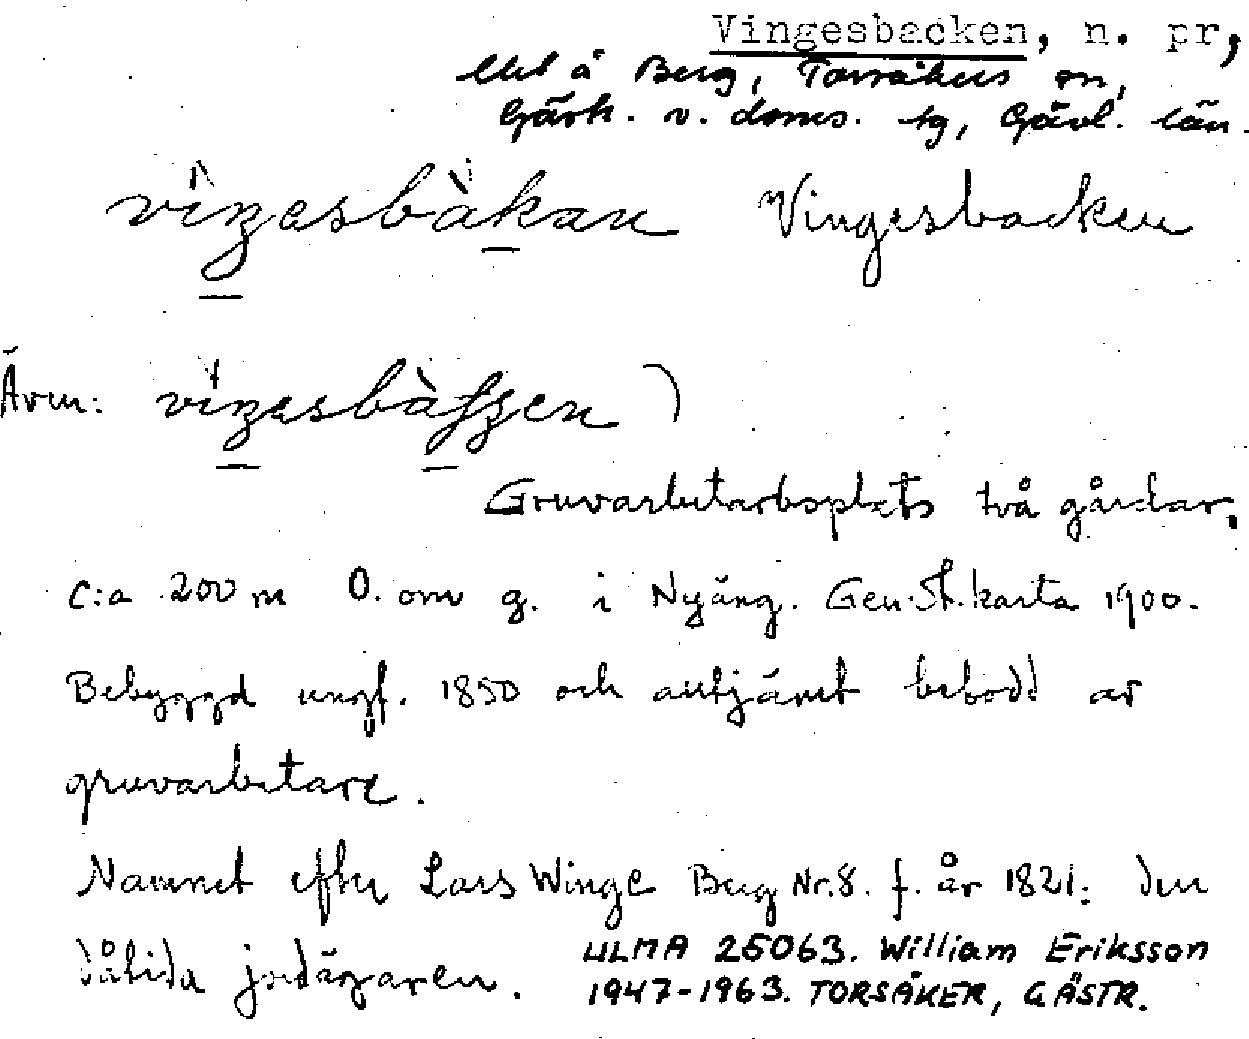 Vingesbacken, n. pr,
å Berg, Torsåkers sn,
Gästr. v. doms. tg, Gävl. län.
Vingesbacken
Även: )
Gruvarbetarbsplats två gårdar.
c:a 200 m O. om g. i Nyäng. Gen.St.karta 1900.
Bebyggd ungf. 1850 och alltjämt bebodd av
gruvarbetare.
Namnet efter Lars Winge Berg Nr.8. f. år 1821. den
dåtida jordägaren.
ULMA 25063. William Eriksson
1947-1963. TORSÅKER, GÄSTR.